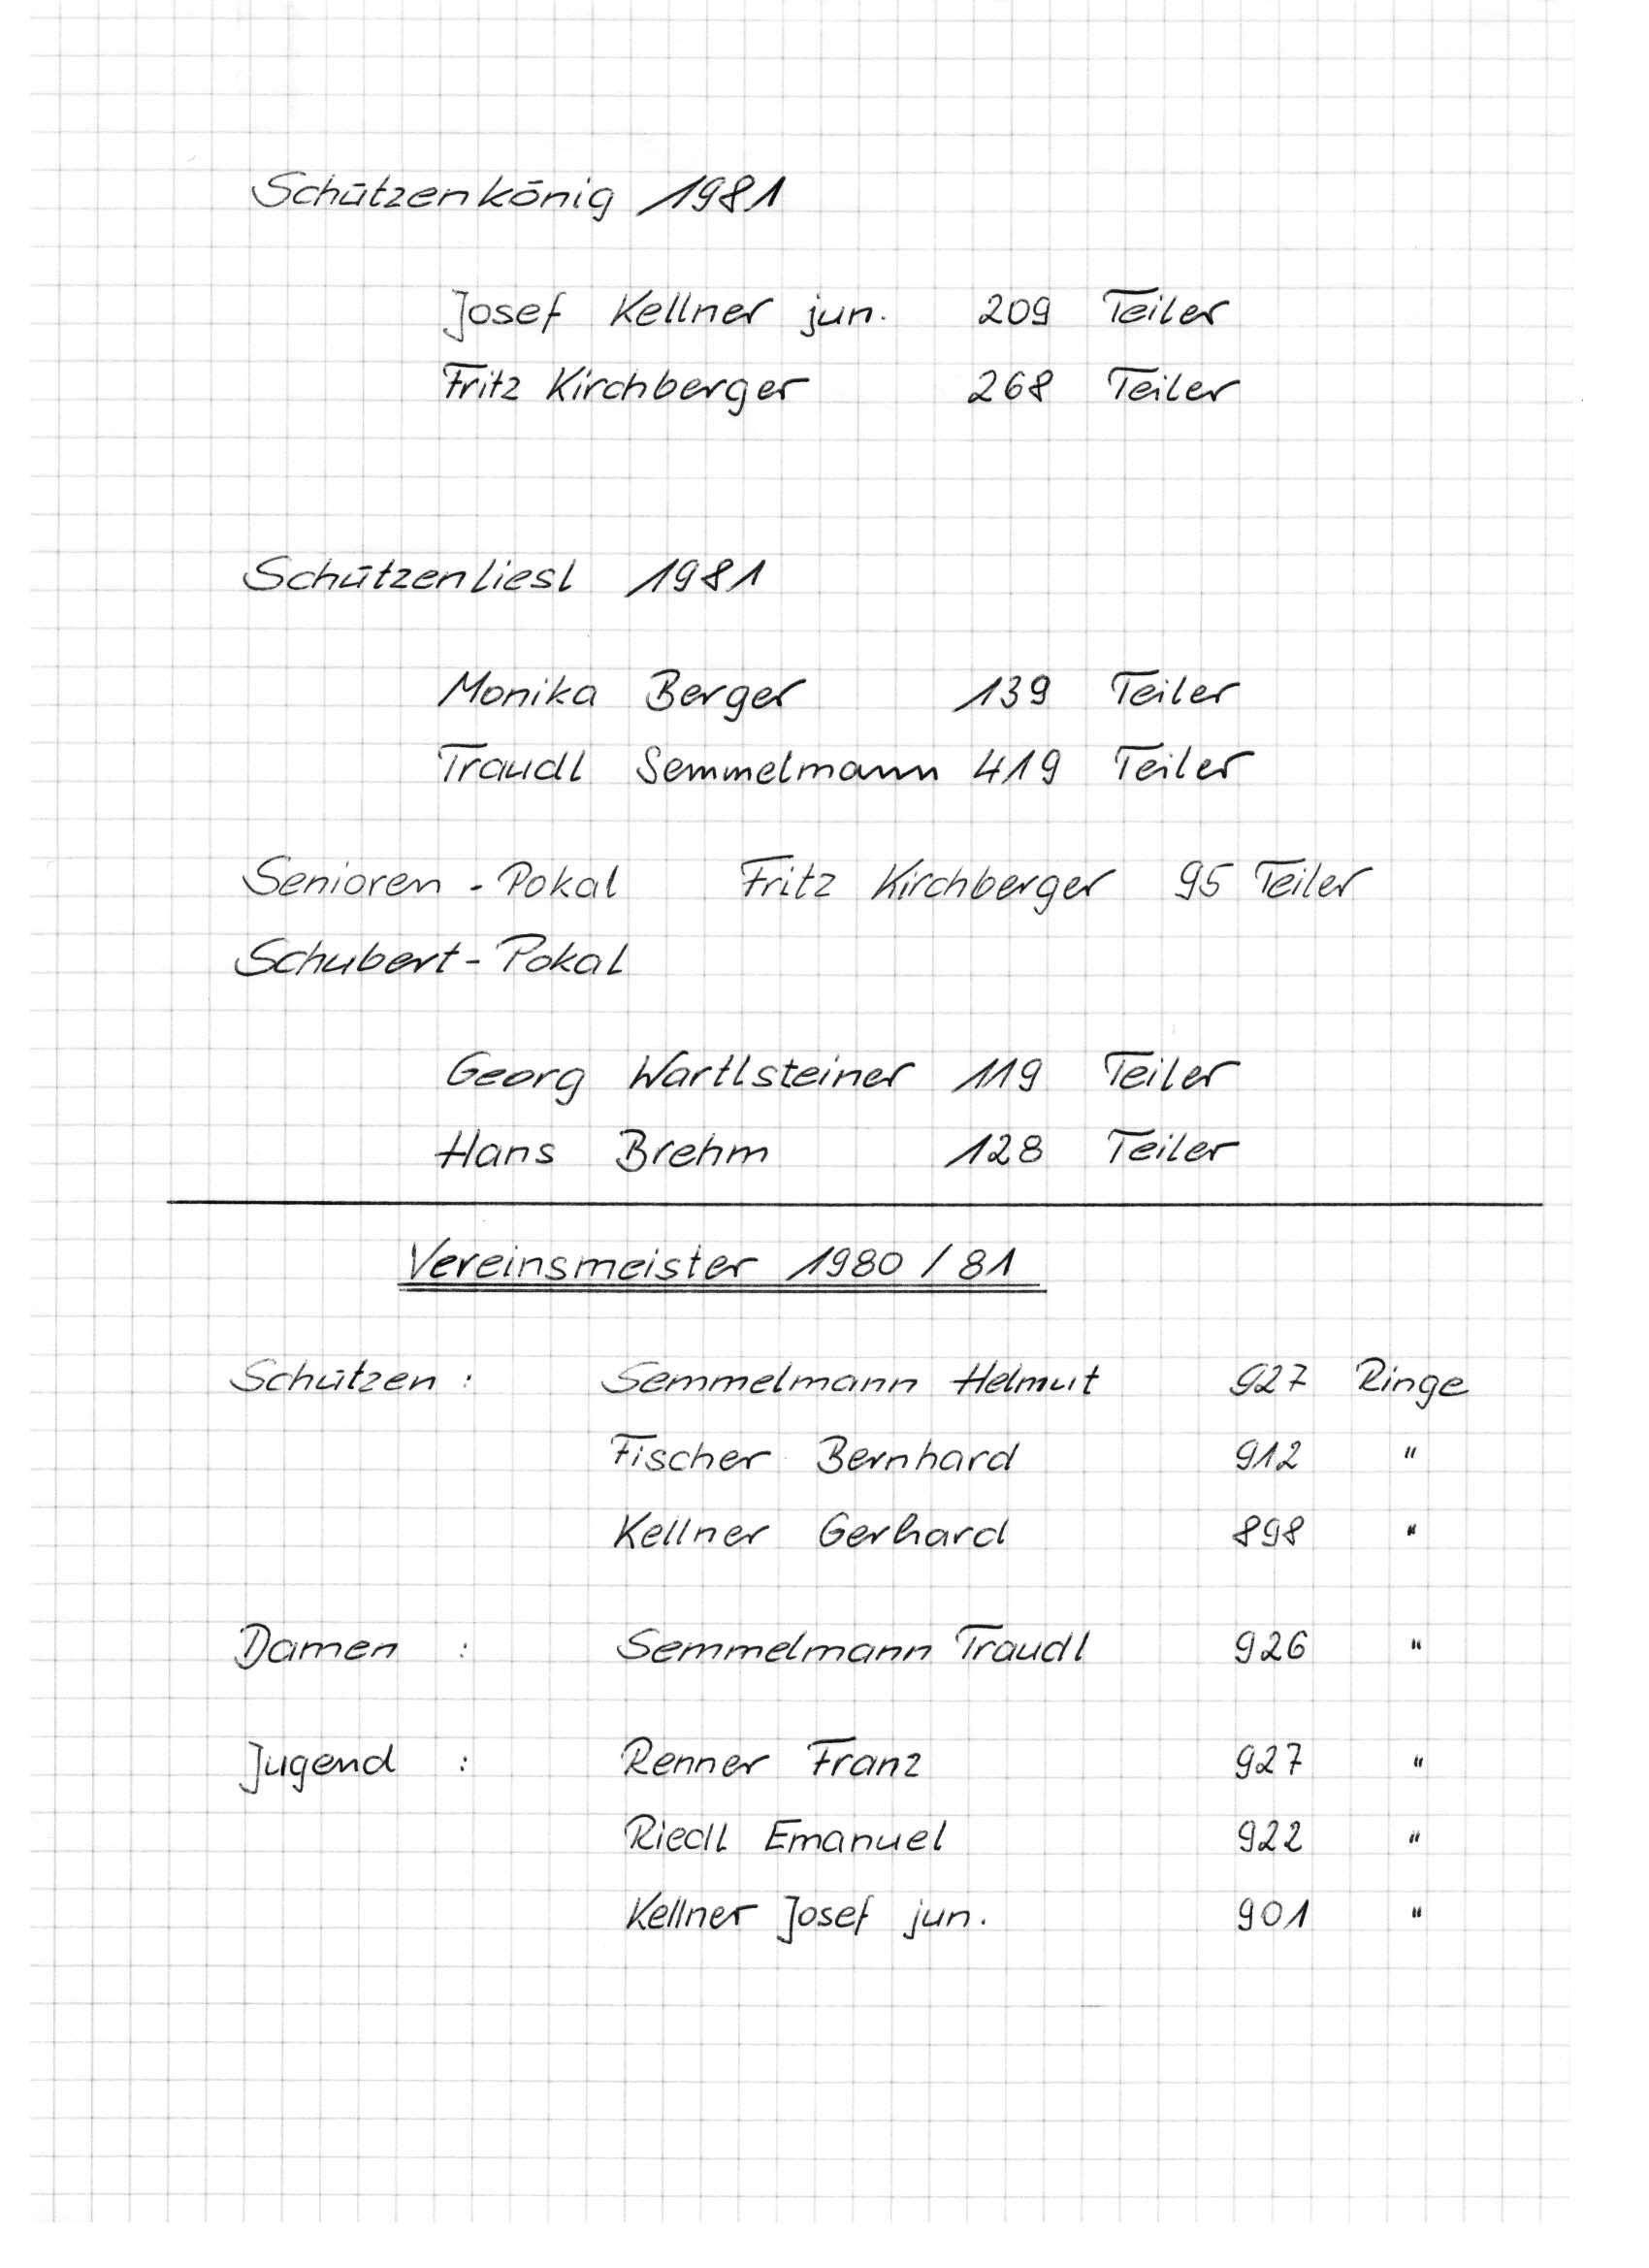 Schützenkönig 1981
Josef Kellner jun. 209 Teiler
Fritz Kirchberger 268 Teiler
Schützenliesl 1981
Monika Berger 139 Teiler
Traudl Semmelmann 419 Teiler
Senioren - Pokal Fritz Kirchberger 95 Teiler
Schubert - Pokal
Georg Wartlsteiner 119 Teiler
Hans Brehm 128 Teiler
Vereinsmeister 1980 / 81
Schützen : Semmelmann Helmut 927 Ringe
Fischer Bernhard 912 "
Kellner Gerhard 898 "
Damen : Semmelmann Traudl 926 "
Jugend : Renner Franz 927 "
Riedl Emanuel 922 "
Kellner Josef jun. 901 "